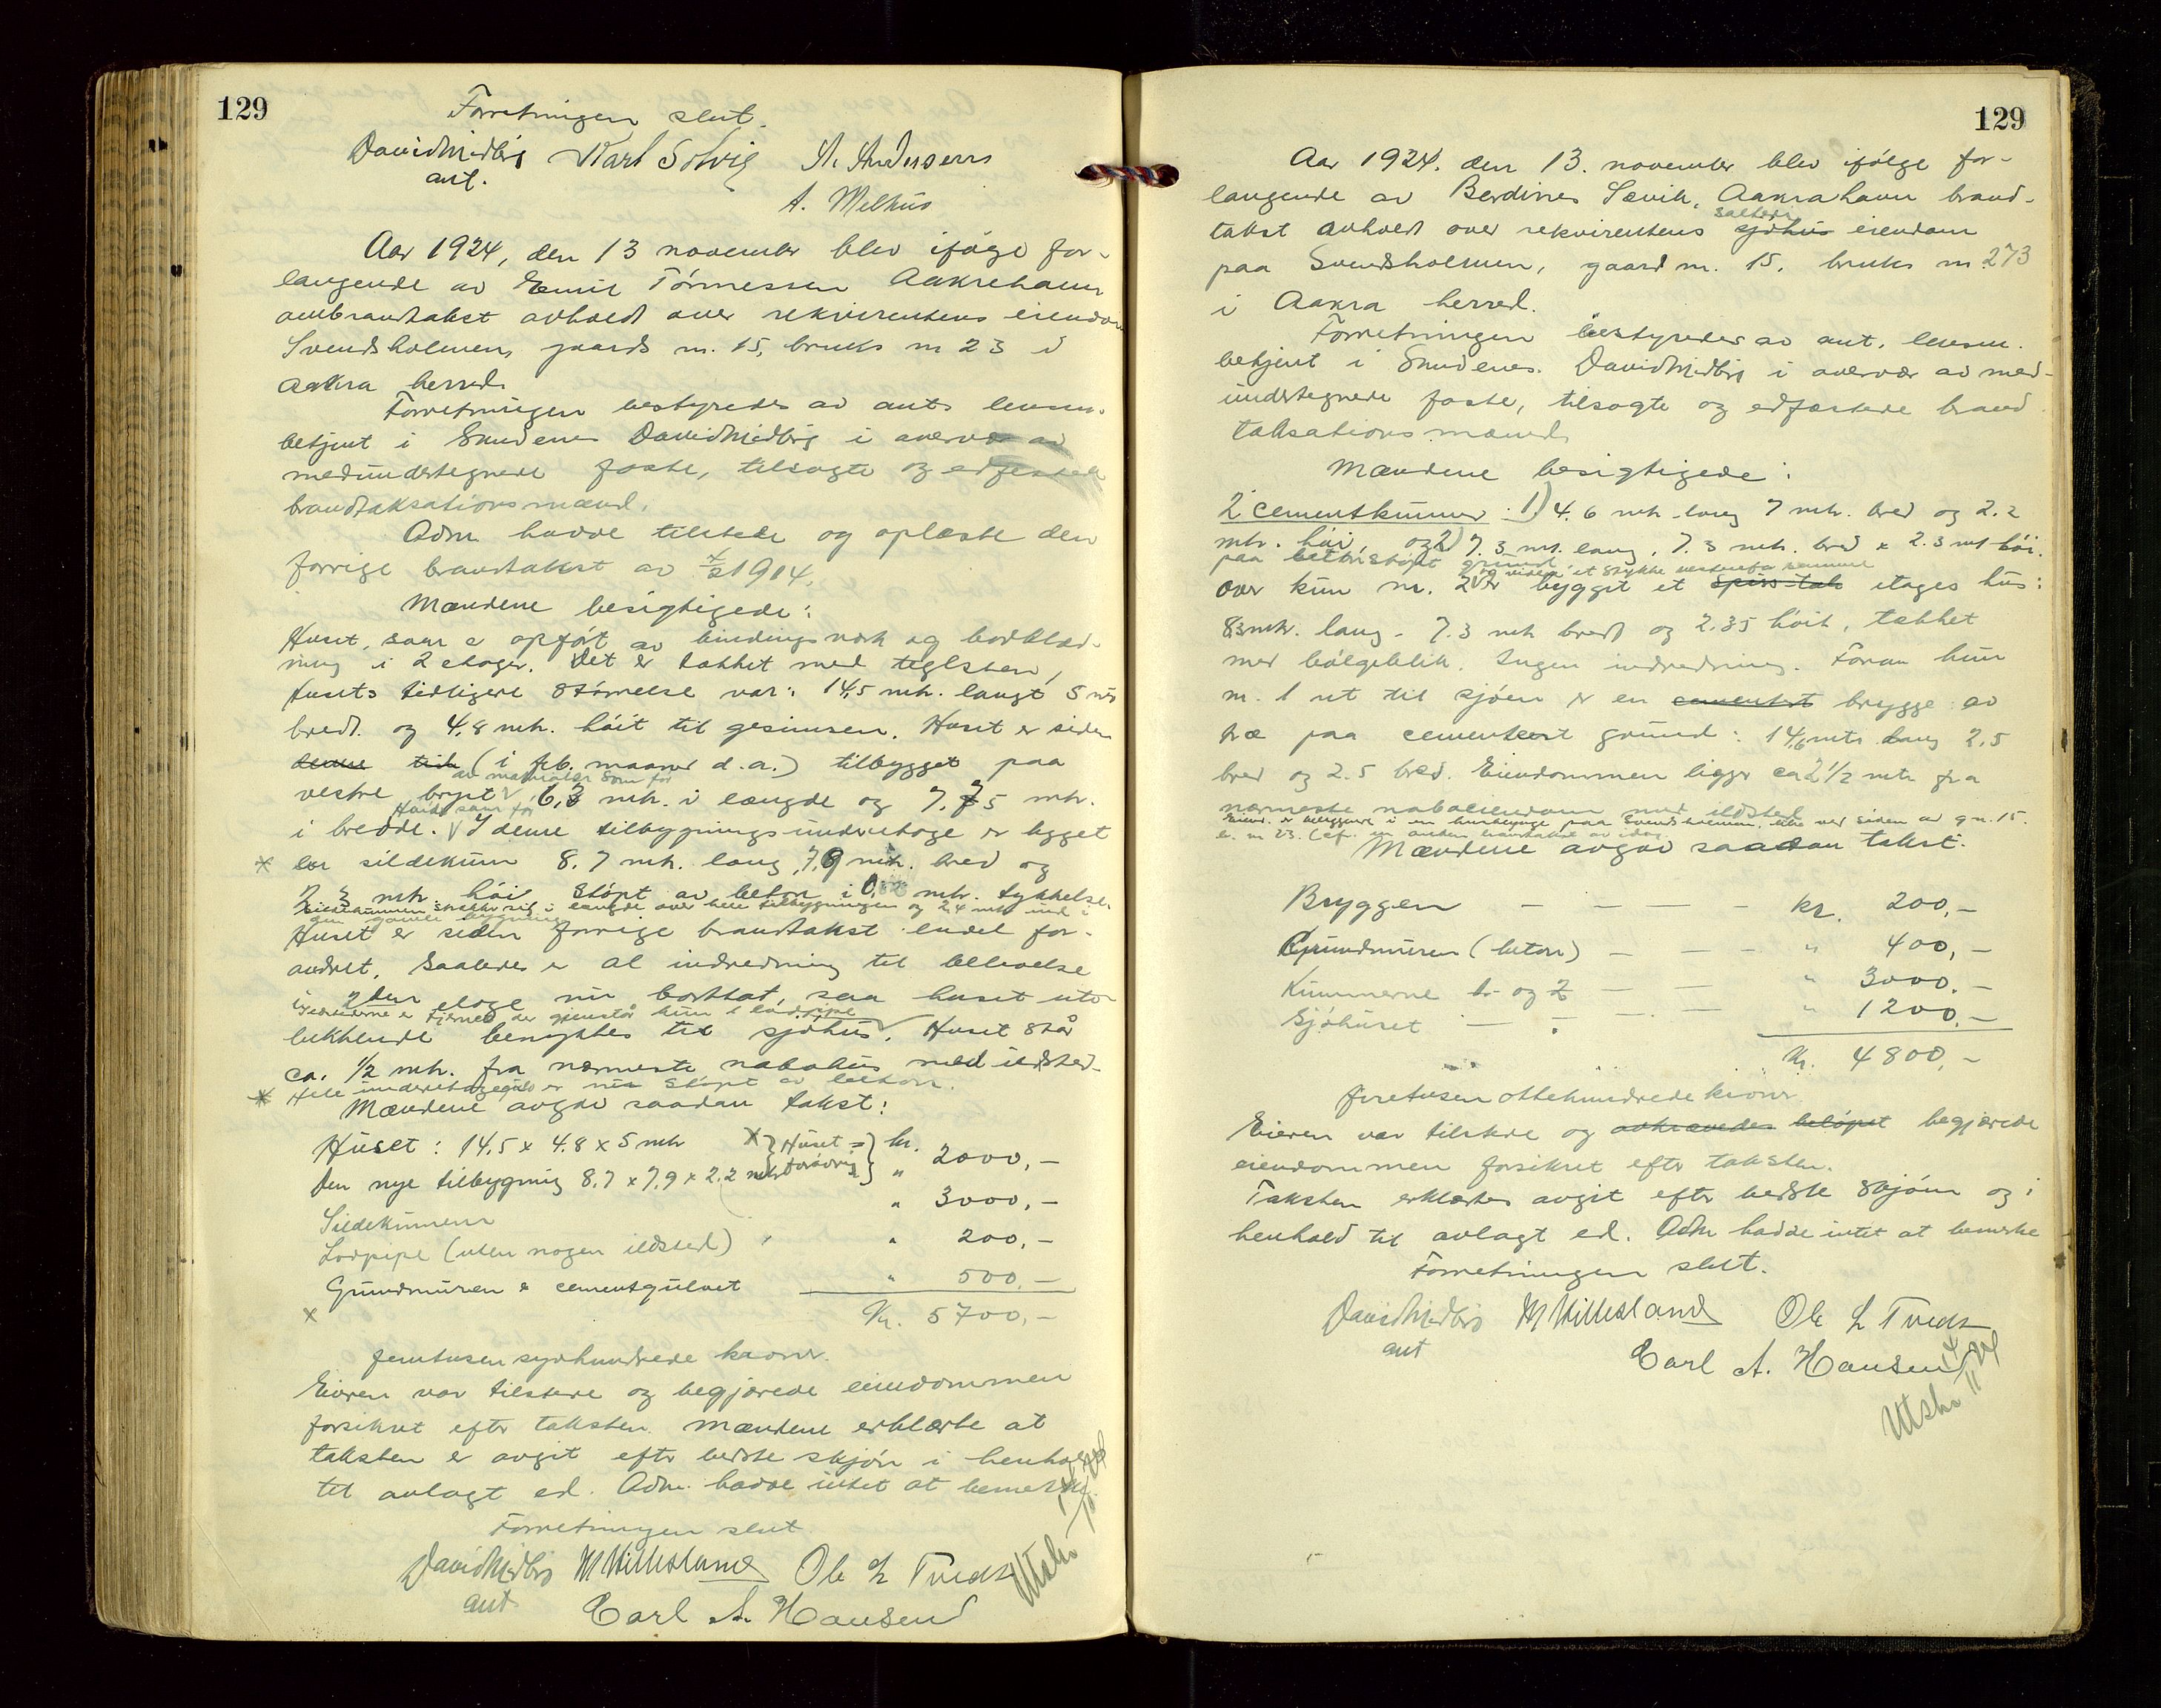 129
Forretningen slut.
David Midbøe Karl Solvig A. Andersen
aut.
A. Melhus
Aar 1924, den 13 november blev iføge for-
langende av Emil Tønnessen Aakrehavn
ombrandtakst avholdt over rekvirentens eiendom
Svendsholmen, gaards nr. 15, bruks nr 23 i
Aakra herred.
Forretningen bestyredes av aut. lensm.
betjent i Skudenes David Midbøe i overvær av
medundertegnede faste, tilsagte og edfestede
brandtaksationsmænd.
Adm. havde tilstede og oplæste den
forrige brandtakst av 1914.
Mændene besigtigede:
Huset, som er opført av bindingsverk og bordklæd-
ning i 2 etager. Det er tækket med teglsten,
husets tidligere størrelse var: 14,5 mtr. langt 5 mtr
bredt og 4,8 mtr. høit til gesimsen. Huset er siden
denne tid (i feb. maaned d.a.) tilbygget paa
av materialer som før
vestre 6,3 mtr. i længde og 7,75 mtr.
Høide som før
i bredde. I denne tilbygnings underetage er bygget
* en sildekum 8,7 mtr. lang, 7,9 mtr. bred og
2,3 mtr. høi støpt av beton i mtr. tykkelse.
Sildekummen strekker sig i længde over hele tilbygningen og 2,4 mtr ind i
den gamle bygning
Huset er siden forrige brandtakst endel for-
andret. Saaledes er al indredning til beboelse
i 2den etage nu borttat, saa huset ute-
ildstederne er fjernet der gjenstår kun 1 lodpipe
lukkende benyttes til sjøhus. Huset står
ca. 1/2 mtr. fra nærmeste nabohus med ildsted.
* Hele underetagegulv er nu støpt av beton.
Mændene avgav saadan takst:
Huset: 14,5 x 4,8 x 5 mtr x } Huset = } kr.
Den nye tilbygning 8,7 x 7,9 x 2,2 mtr forøvrig } " 2000,-
Sildekummen " 3000,-
Lodpipe (uten nogen ildsted) " 200,-
Grundmuren & cementgulvet " 500,-
x Kr. 5700,-
femtusen syvhundrede kroner.
Eieren var tilstede og begjærede eiendommen
forsikret efter taksten. Mændene erklærte at
taksten er avgit efter bedste skjøn i henhold
til avlagt ed. Adm. havde intet at bemerke.
Forretningen slut.
David Midbøe M Hillesland Ole L Tveds
aut Carl A. Hansen
Utskr.
129
Aar 1924. den 13. november blev ifølge for-
langende av Berdines Sævik, Aakrahavn brand-
salteri
takst avholdt over rekvirentens sjøhus eiendom
paa Svendsholmen, gaard nr. 15. bruks nr 273
i Aakra herred.
Forretningen bestyredes av aut. lensm.
betjent i Skudenes. David Midbøe i overvær av med-
undertegnede faste, tilsagte og edfæstede brand
taksationsmænd.
Mændene besigtigede:
2 cementkummer: 1) 4,6 mtr lang 7 mtr. bred og 2,2
mtr. høi, og 2) 7,3 mtr. lang, 7,3 mtr. bred x 2.3 mtr høi.
paa betonstøpt grund
og videre et stykke vestenfor kummene
Over kum nr. 2 er bygget et etages hus:
83 mtr. lang - 7.3 mtr bredt og 2.35 høit, tækket
med bølgeblik. Ingen indredning. Foran kum
nr. 1 ut til sjøen er en cementert brygge av
træ paa cementeert grund: 14,6 mtr lang 2,5
bred og 2.5 bred. Eiendommen ligger ca 2 1/2 mtr. fra
nærmeste naboeiendom med ildsted
Eiend. er beliggende i en husklynge paa Svendsholmen, like ved siden av g.nr. 15.
b. nr 23. (cfr. en anden brandtakst av idag.
Mændene avgav saadan takst:
Bryggen — — — — — kr. 200,-
Grundmuren (beton) — — — " 400,-
Kummerne 1 og 2 — — " 3000,-
Sjøhuset — — — — " 1200,-
Kr. 4800,-
firetusen ottehundrede kroner
Eieren var tilstede og avkrævedes beløpet begjærede
eiendommen forsikret efter taksten.
Taksten erklærtes avgit efter bedste skjøn og i
henhold til avlagt ed. Adm. hadde intet at bemerke
Forretningen slut.
David Midbøe M Hillesland Ole L Tveds
aut Carl A. Hansen
Utskr.